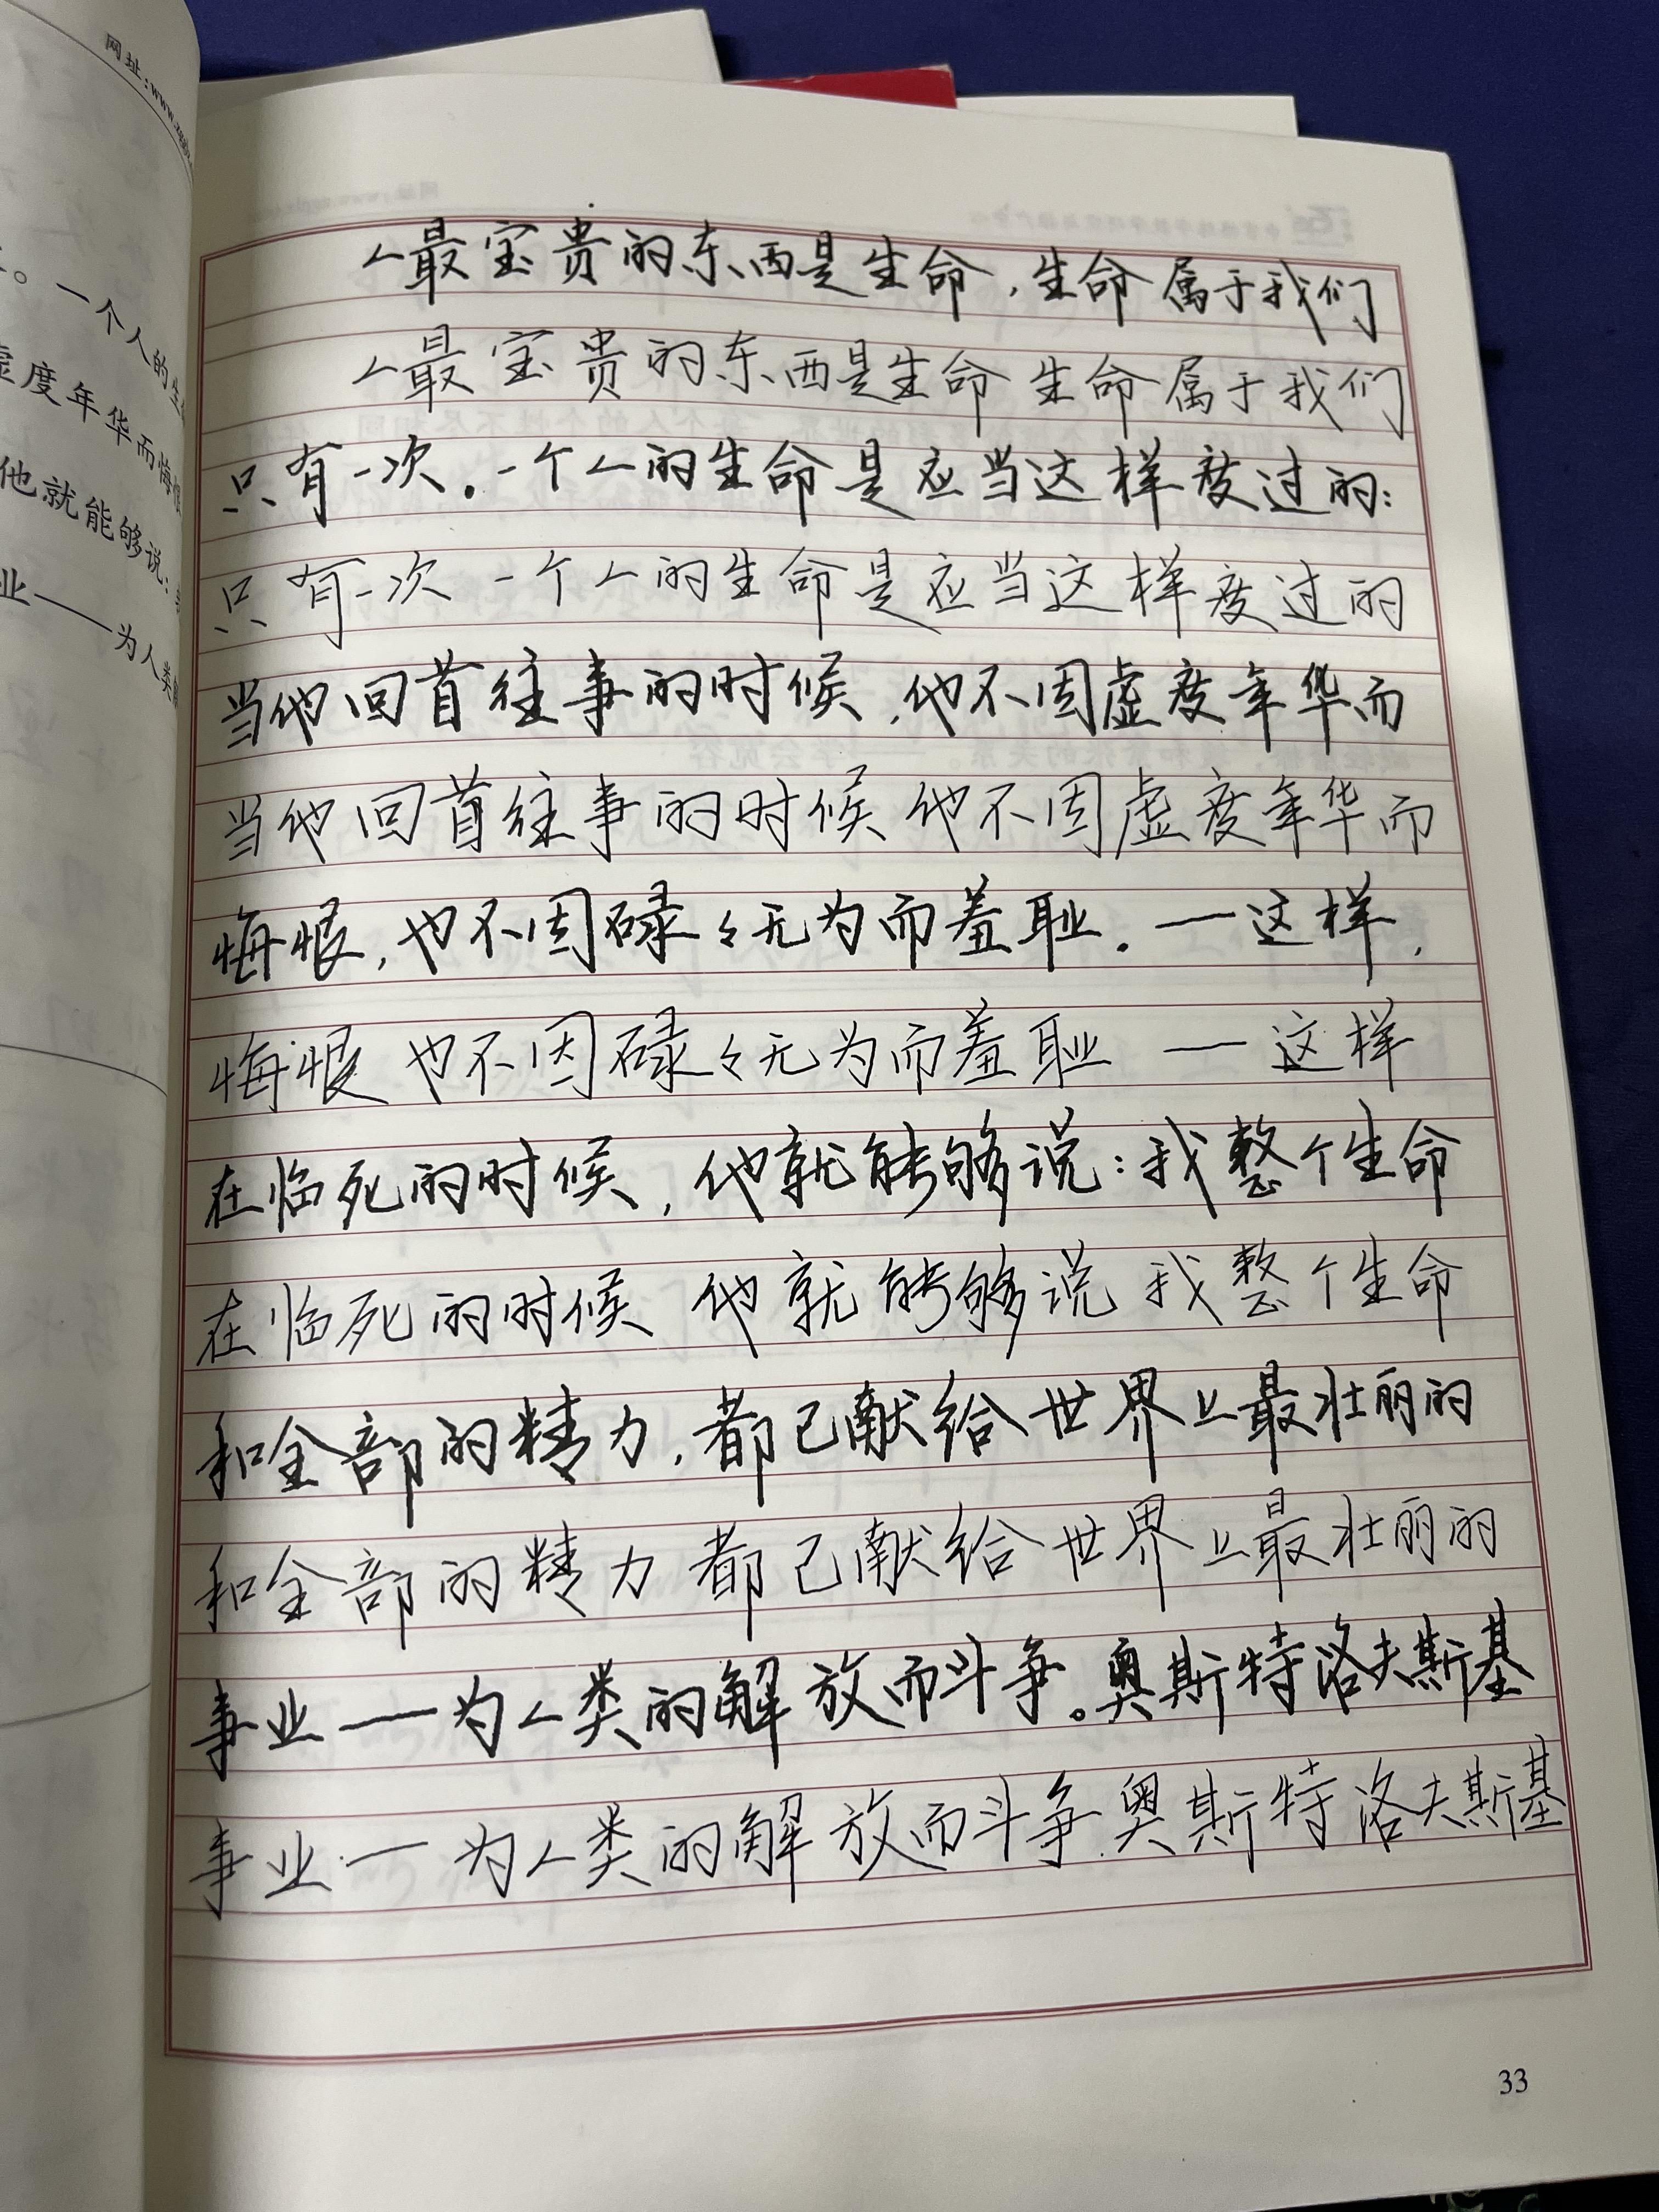 网址:www.
。一个人的生
虚度年华而悔恨
他就能够说:
业——为人类
人最宝贵的东西是生命,生命属于我们
人最宝贵的东西是生命 生命属于我们
只有一次。一个人的生命是应当这样度过的:
只有一次 一个人的生命是应当这样度过的
当他回首往事的时候,他不因虚度年华而
当他回首往事的时候 他不因虚度年华而
悔恨,也不因碌々无为而羞耻。—这样,
悔恨 也不因碌々无为而羞耻 —这样
在临死的时候,他就能够说:我整个生命
在临死的时候 他就能够说 我整个生命
和全部的精力,都已献给世界上最壮丽的
和全部的精力 都已献给世界上最壮丽的
事业——为人类的解放而斗争。奥斯特洛夫斯基
事业——为人类的解放而斗争 奥斯特洛夫斯基
33